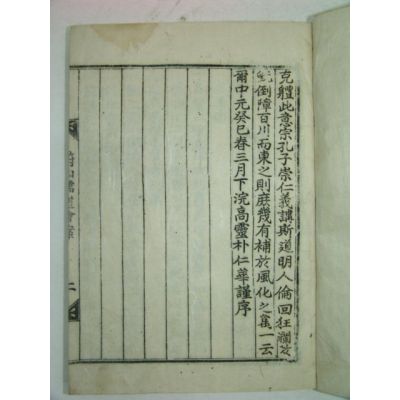 克體此意宗孔子崇仁義講斯道明人倫回狂瀾於
既倒障百川而東之則庶幾有補於風化之萬一云
爾中元癸巳春三月下浣高靈朴仁華謹序
儒道會案
二